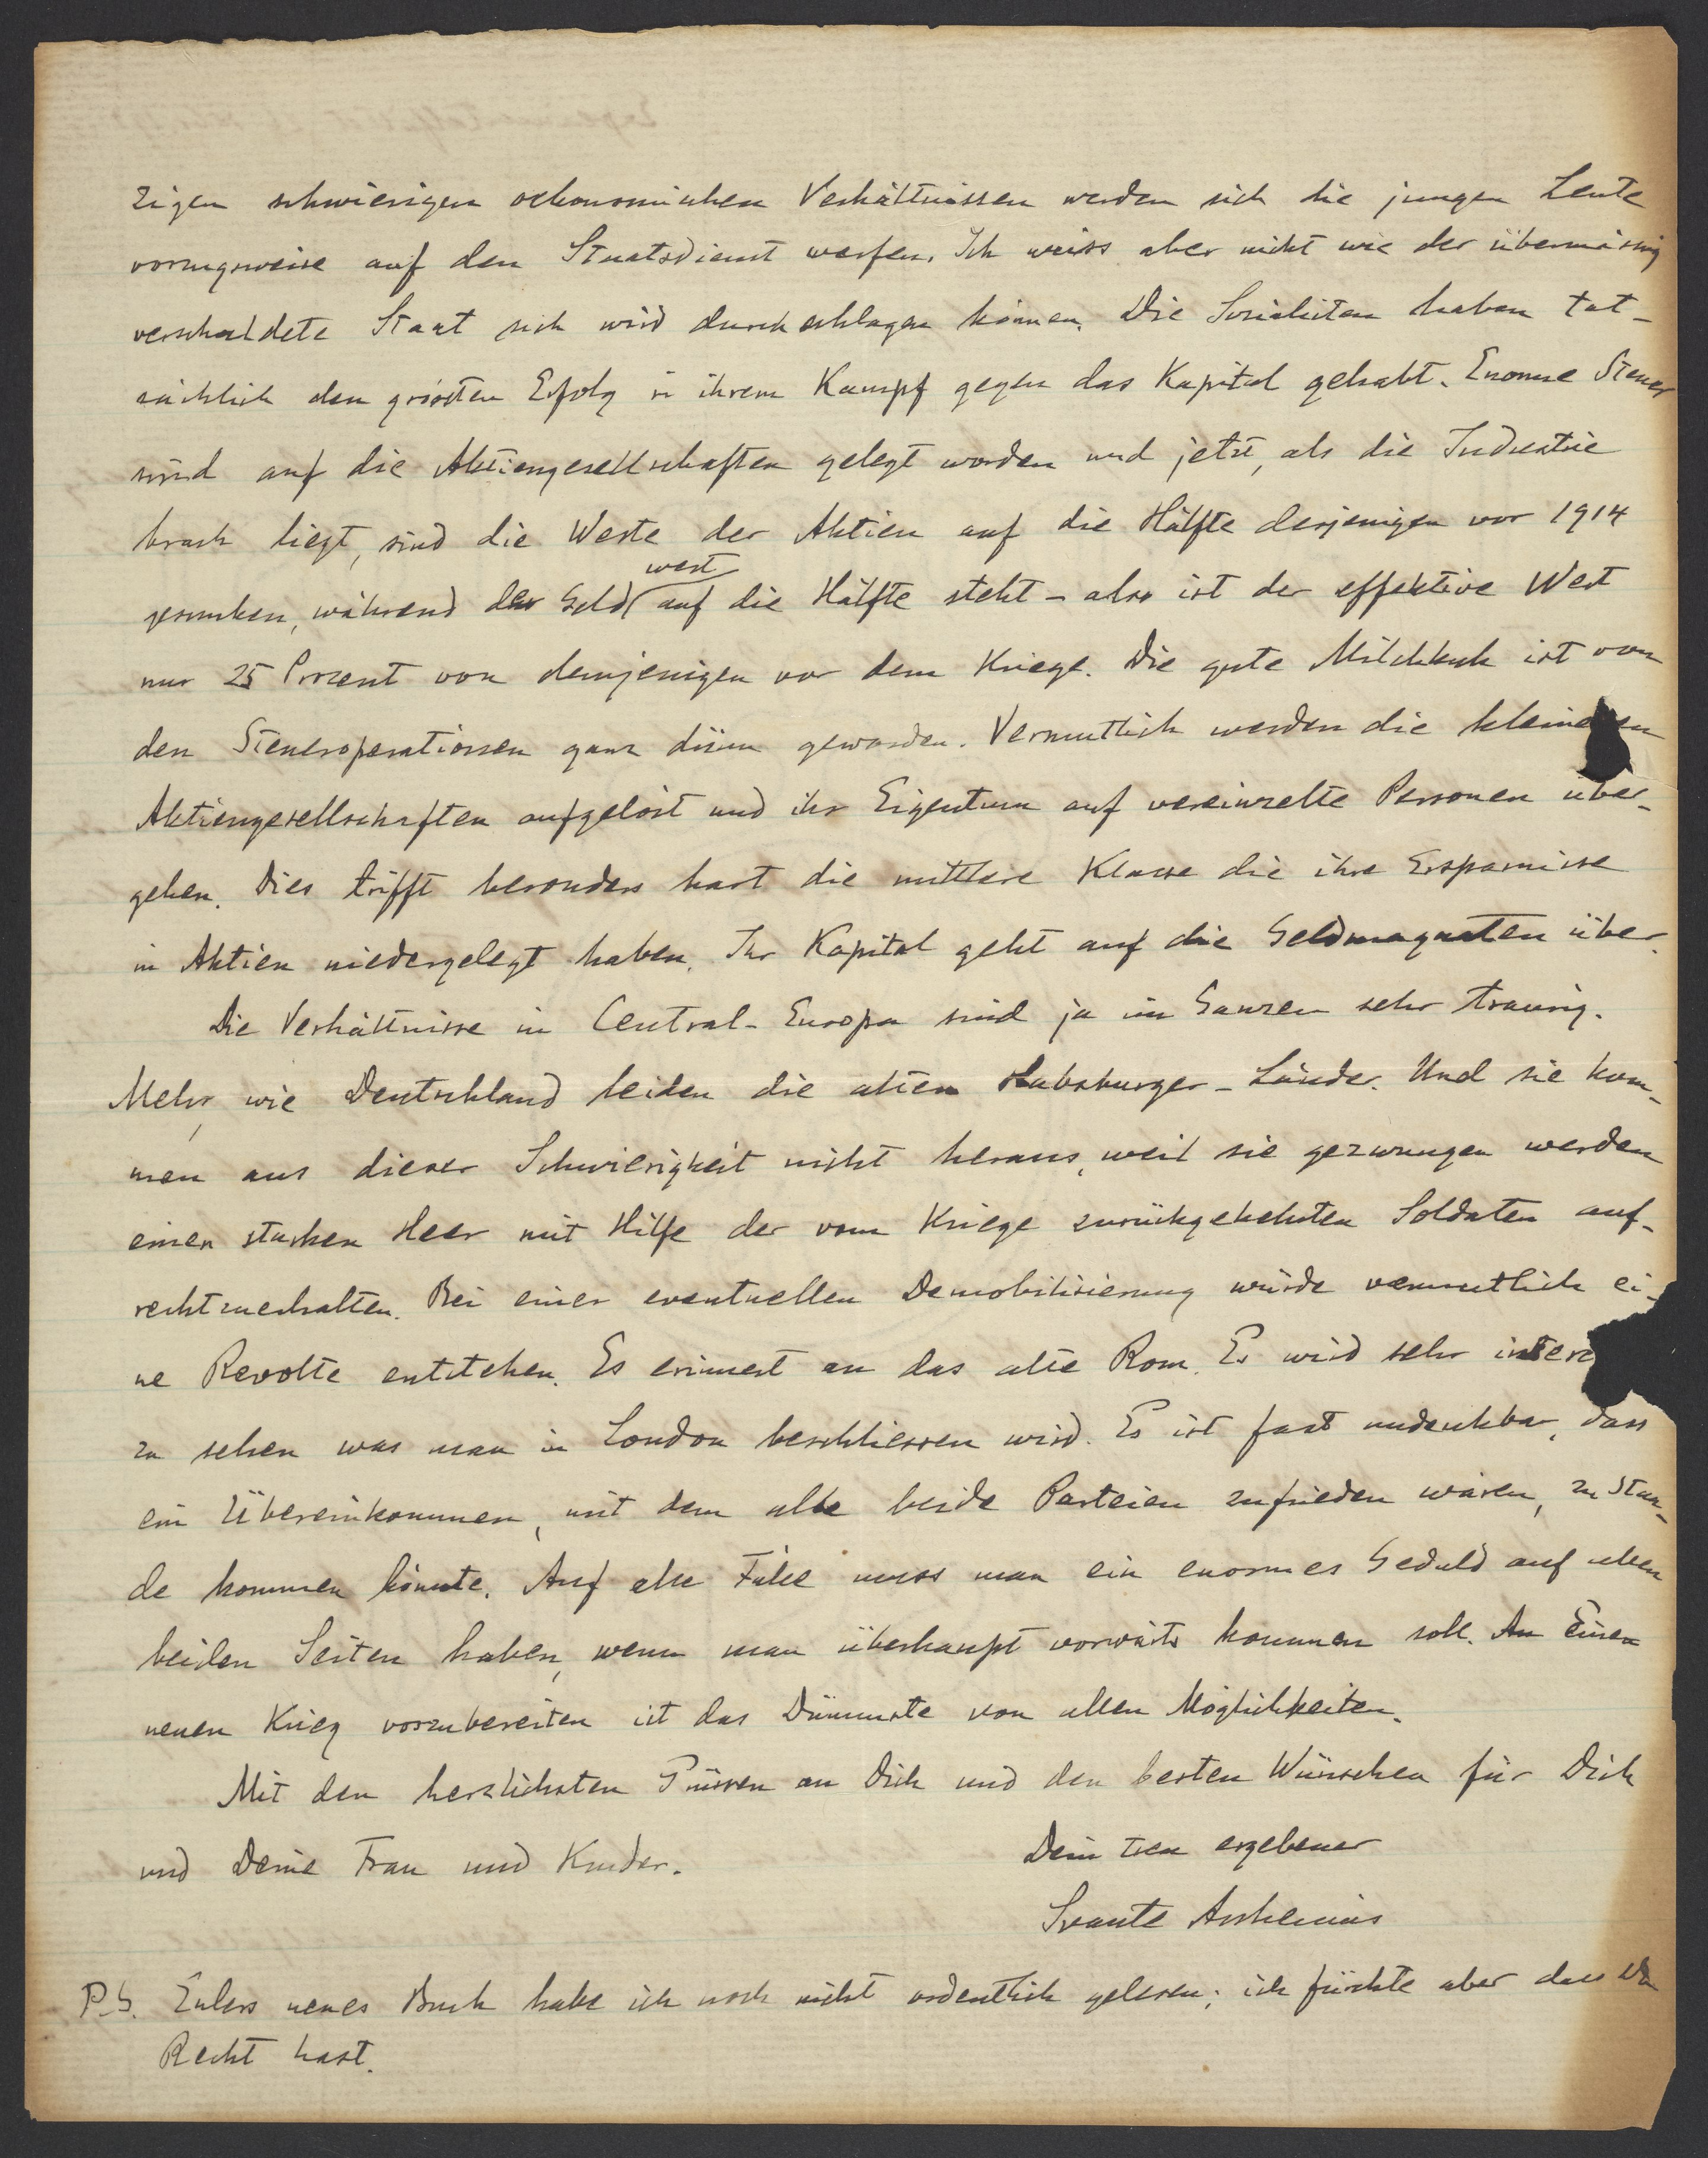 zigen schwierigen oekonomischen Verhältnissen werden sich die jungen Leute
vorzugsweise auf den Staatsdienst werfen. Ich weiss aber nicht wie der übermässig
verschuldete Staat sich wird durchschlagen können. Die Socialisten haben tat-
sächlich den grössten Erfolg in ihrem Kampf gegen das Kapital gehabt. Enorme Steuer
sind auf die Aktiengesellschaften gelegt worden und jetzt, als die Industrie
brach liegt, sind die Werte der Aktien auf die Hälfte derjenigen vor 1914
gesunken, während der Geldwert auf die Hälfte steht - also ist der effektive Wert
nur 25 Prozent von demjenigen vor dem Kriege. Die gute Milchkuh ist von
den Steueroperationen ganz dünn geworden. Vermutlich werden die kleineren
Aktiengesellschaften aufgelöst und ihr Eigentum auf vereinzelte Personen über-
gehen. Dies trifft besonders hart die mittlere Klasse die ihre Ersparnisse
in Aktien niedergelegt haben. Ihr Kapital geht auf die Geldmagnaten über.
Die Verhältnisse in Central-Europa sind ja im Ganzen sehr traurig.
Mehr, wie Deutschland leiden die alten Habsburger-Länder. Und sie kom-
men aus dieser Schwierigkeit nicht heraus, weil sie gezwungen werden
einen starken Heer mit Hilfe der vom Kriege zurückgekehrten Soldaten auf-
rechtzuerhalten. Bei einer eventuellen Demobilisierung würde vermutlich ei-
ne Revolte entstehen. Es erinnert an das alte Rom. Es wird sehr intere
zu sehen was man in London beschliessen wird. Es ist fast undenkbar, dass
ein Übereinkommen, mit dem alle beide Parteien zufrieden wären, zu Stan-
de kommen könnte. Auf alle Fälle muss man ein enormes Geduld auf allen
beiden Seiten haben, wenn man überhaupt vorwärts kommen soll. Einen
neuen Krieg vorzubereiten ist das Dümmste von allen Möglichkeiten.
Mit den herzlichsten Grüssen an Dich und den besten Wünschen für Dich
und Deine Frau und Kinder.
Dein treu ergebener
Svante Arrhenius
P.S. Eulers neues Buch habe ich noch nicht ordentlich gelesen; ich fürchte aber dass Du
Recht hast.